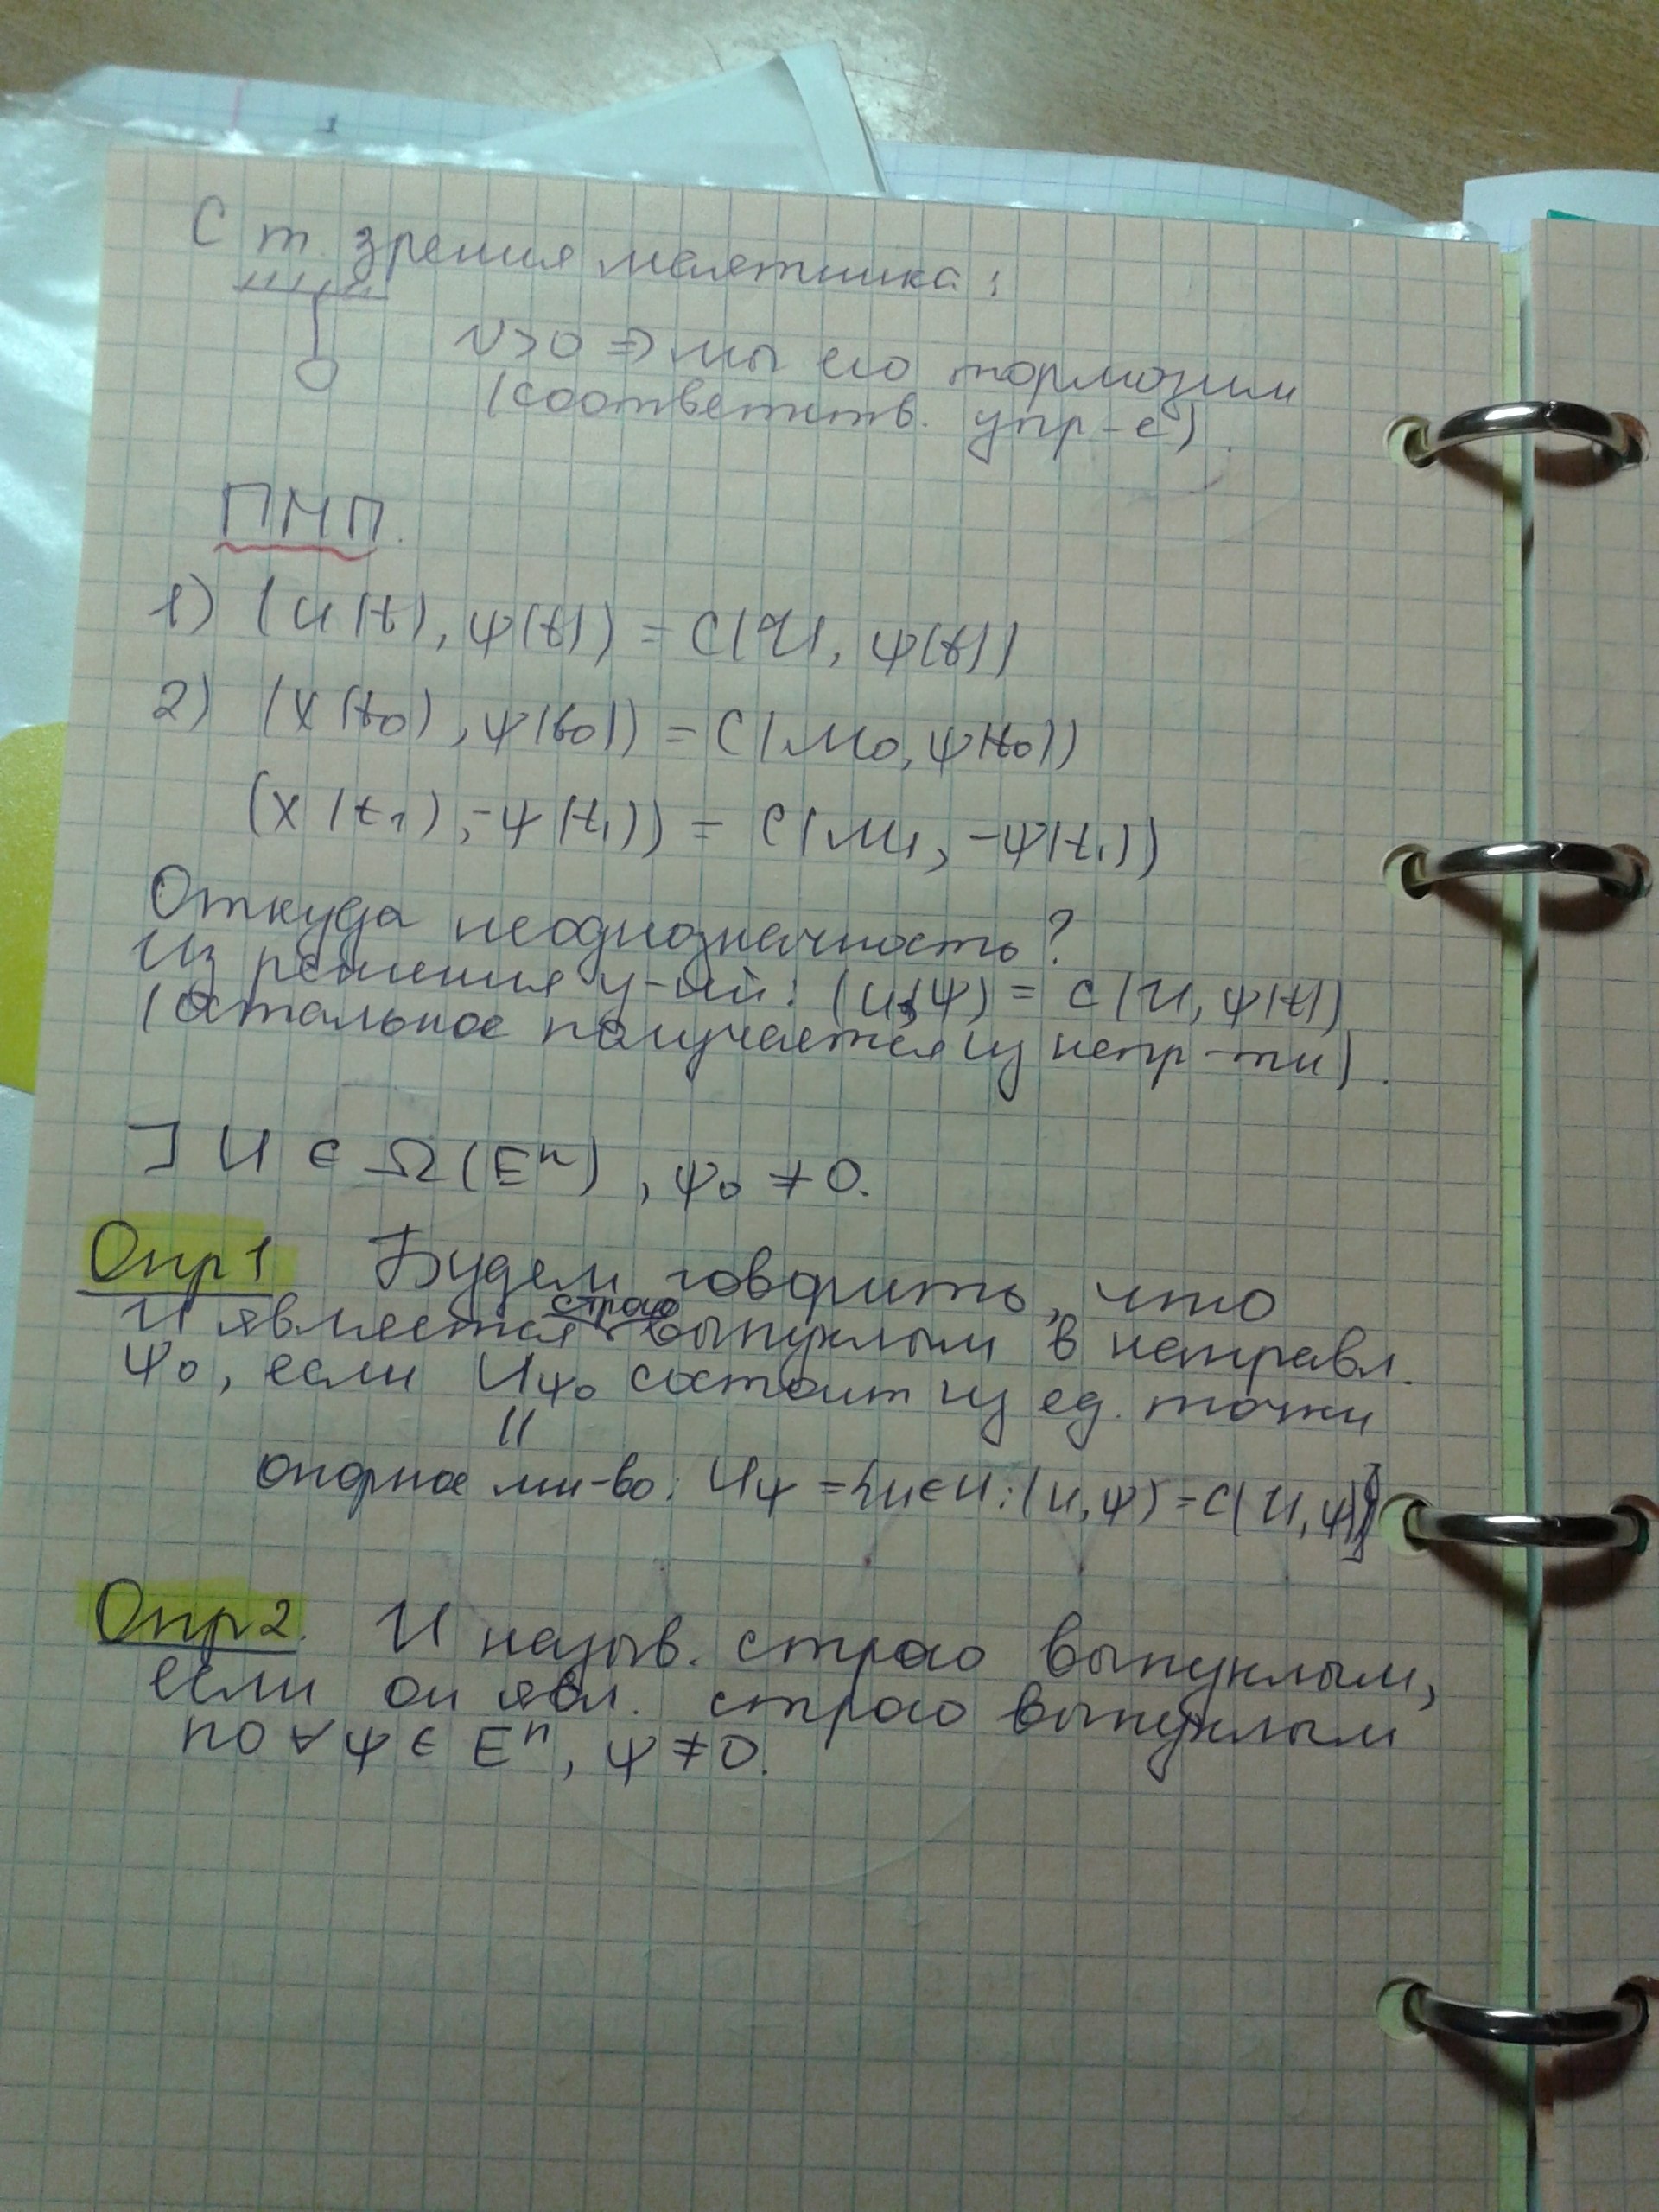 С т. зрения маятника:
v>0 ⇒ мы его тормозим
(соответств. упр-е).
ПМП.
1) (u(t), ψ(t)) = C(U, ψ(t))
2) (x(t₀), ψ(t₀)) = C(M₀, ψ(t₀))
(x(t₁), -ψ(t₁)) = C(M₁, -ψ(t₁))
Откуда неоднозначность?
Из решения у-ий: (u, ψ) = C(U, ψ(t))
(остальное получается из непр-ти).
] U ∈ Ω(Eⁿ), ψ₀ ≠ 0.
Опр1 Будем говорить, что
U является строго выпуклым в направл.
ψ₀, если U_ψ₀ состоит из ед. точки
||
опорное мн-во: U_ψ = {u∈U: (u, ψ) = C(U, ψ)}
Опр2. U назыв. строго выпуклым,
если он явл. строго выпуклым
по ∀ ψ ∈ Eⁿ, ψ ≠ 0.